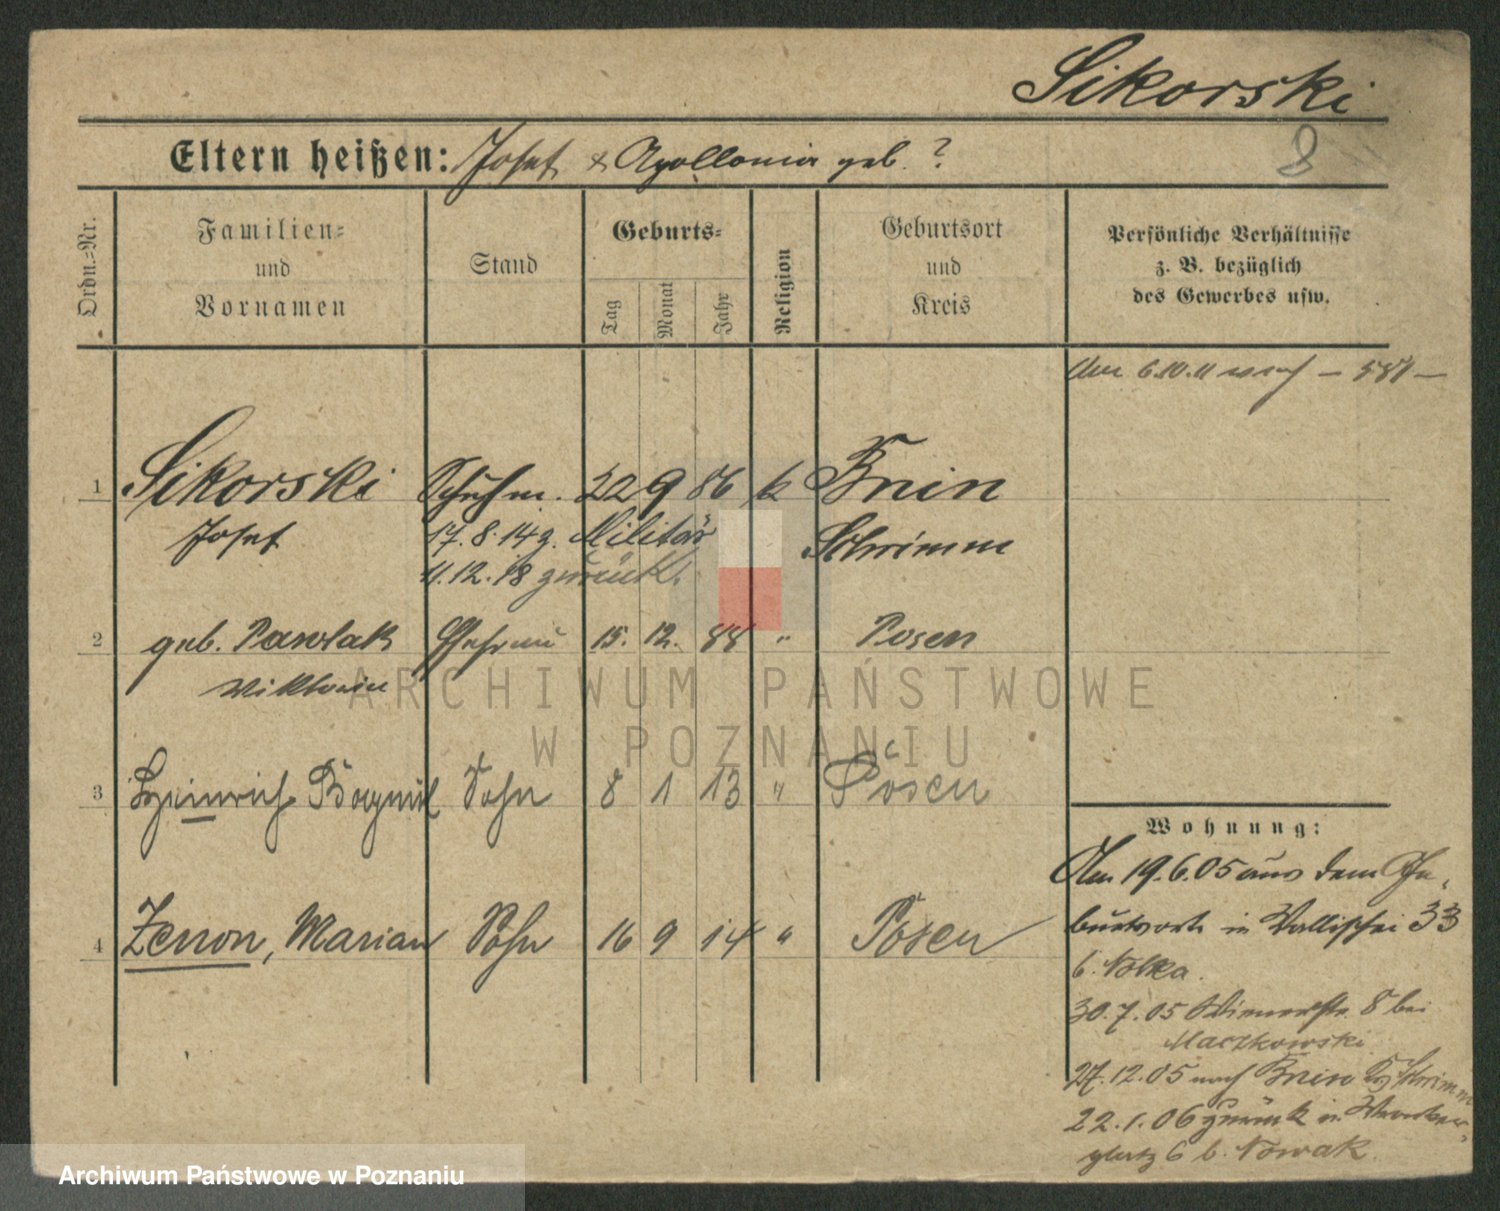 Sikorski
8
Eltern heißen: Josef & Apollonia geb. ?
Ordn.-Nr.
Familien-
und
Vornamen
Stand
Geburts-
Tag
Monat
Jahr
Religion
Geburtsort
und
Kreis
Persönliche Verhältnisse
z. B. bezüglich
des Gewerbes usw.
Am 6.10.11 nach — 581 —
1 Sikorski Schuhm. 22 9 86 k Bnin
Josef 17.8.14 z. Militär Schrimm
11.12.18 zurück.
2 geb. Pawlak Ehefrau 15. 12. 88 " Posen
Wiktoria
ARCHIWUM PAŃSTWOWE
W POZNANIU
3 Heinrich Bogumil Sohn 8 1 13 " Posen
4 Zenon, Marian Sohn 16 9 14 " Posen
Wohnung:
Am 19.6.05 aus dem Ge-
burtsorte in Wallischei 33
b. Nolka.
30.7.05 8 bei
Maczkowski
27.12.05 nach Bnin Kr. Schrimm
22.1.06 zurück in
platz 6 b. Nowak.
Archiwum Państwowe w Poznaniu